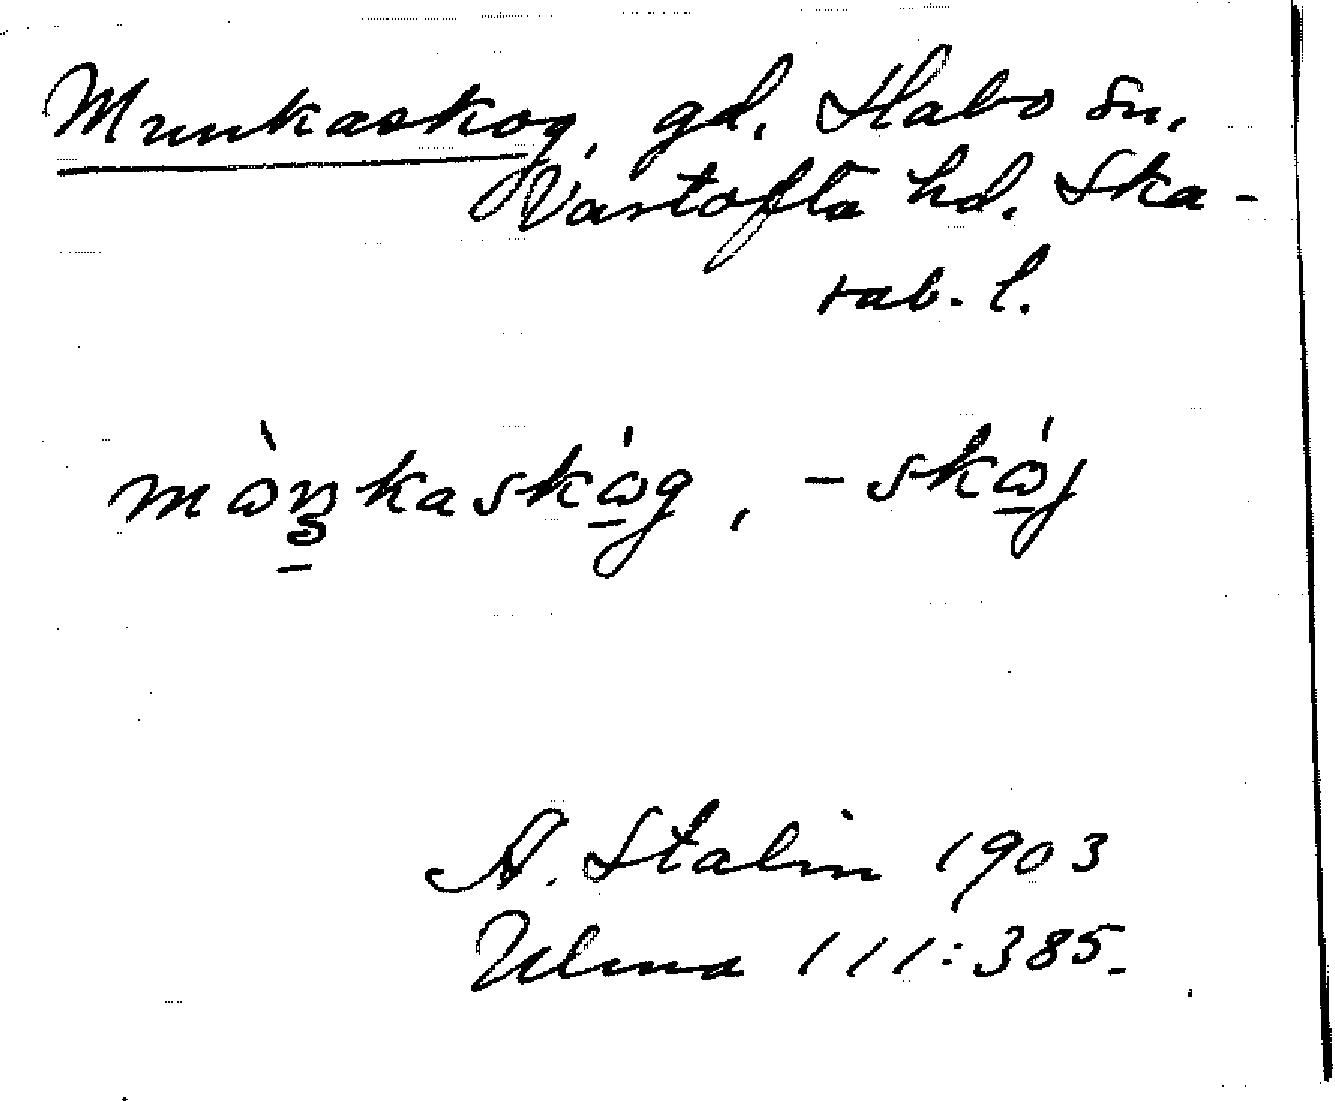 Munkaskog, gd. Habo sn,
Vartofta hd. Ska-
rab. l.
mòŋkaskóg, -skój
A. Stalin 1903
Ulma 111:385.